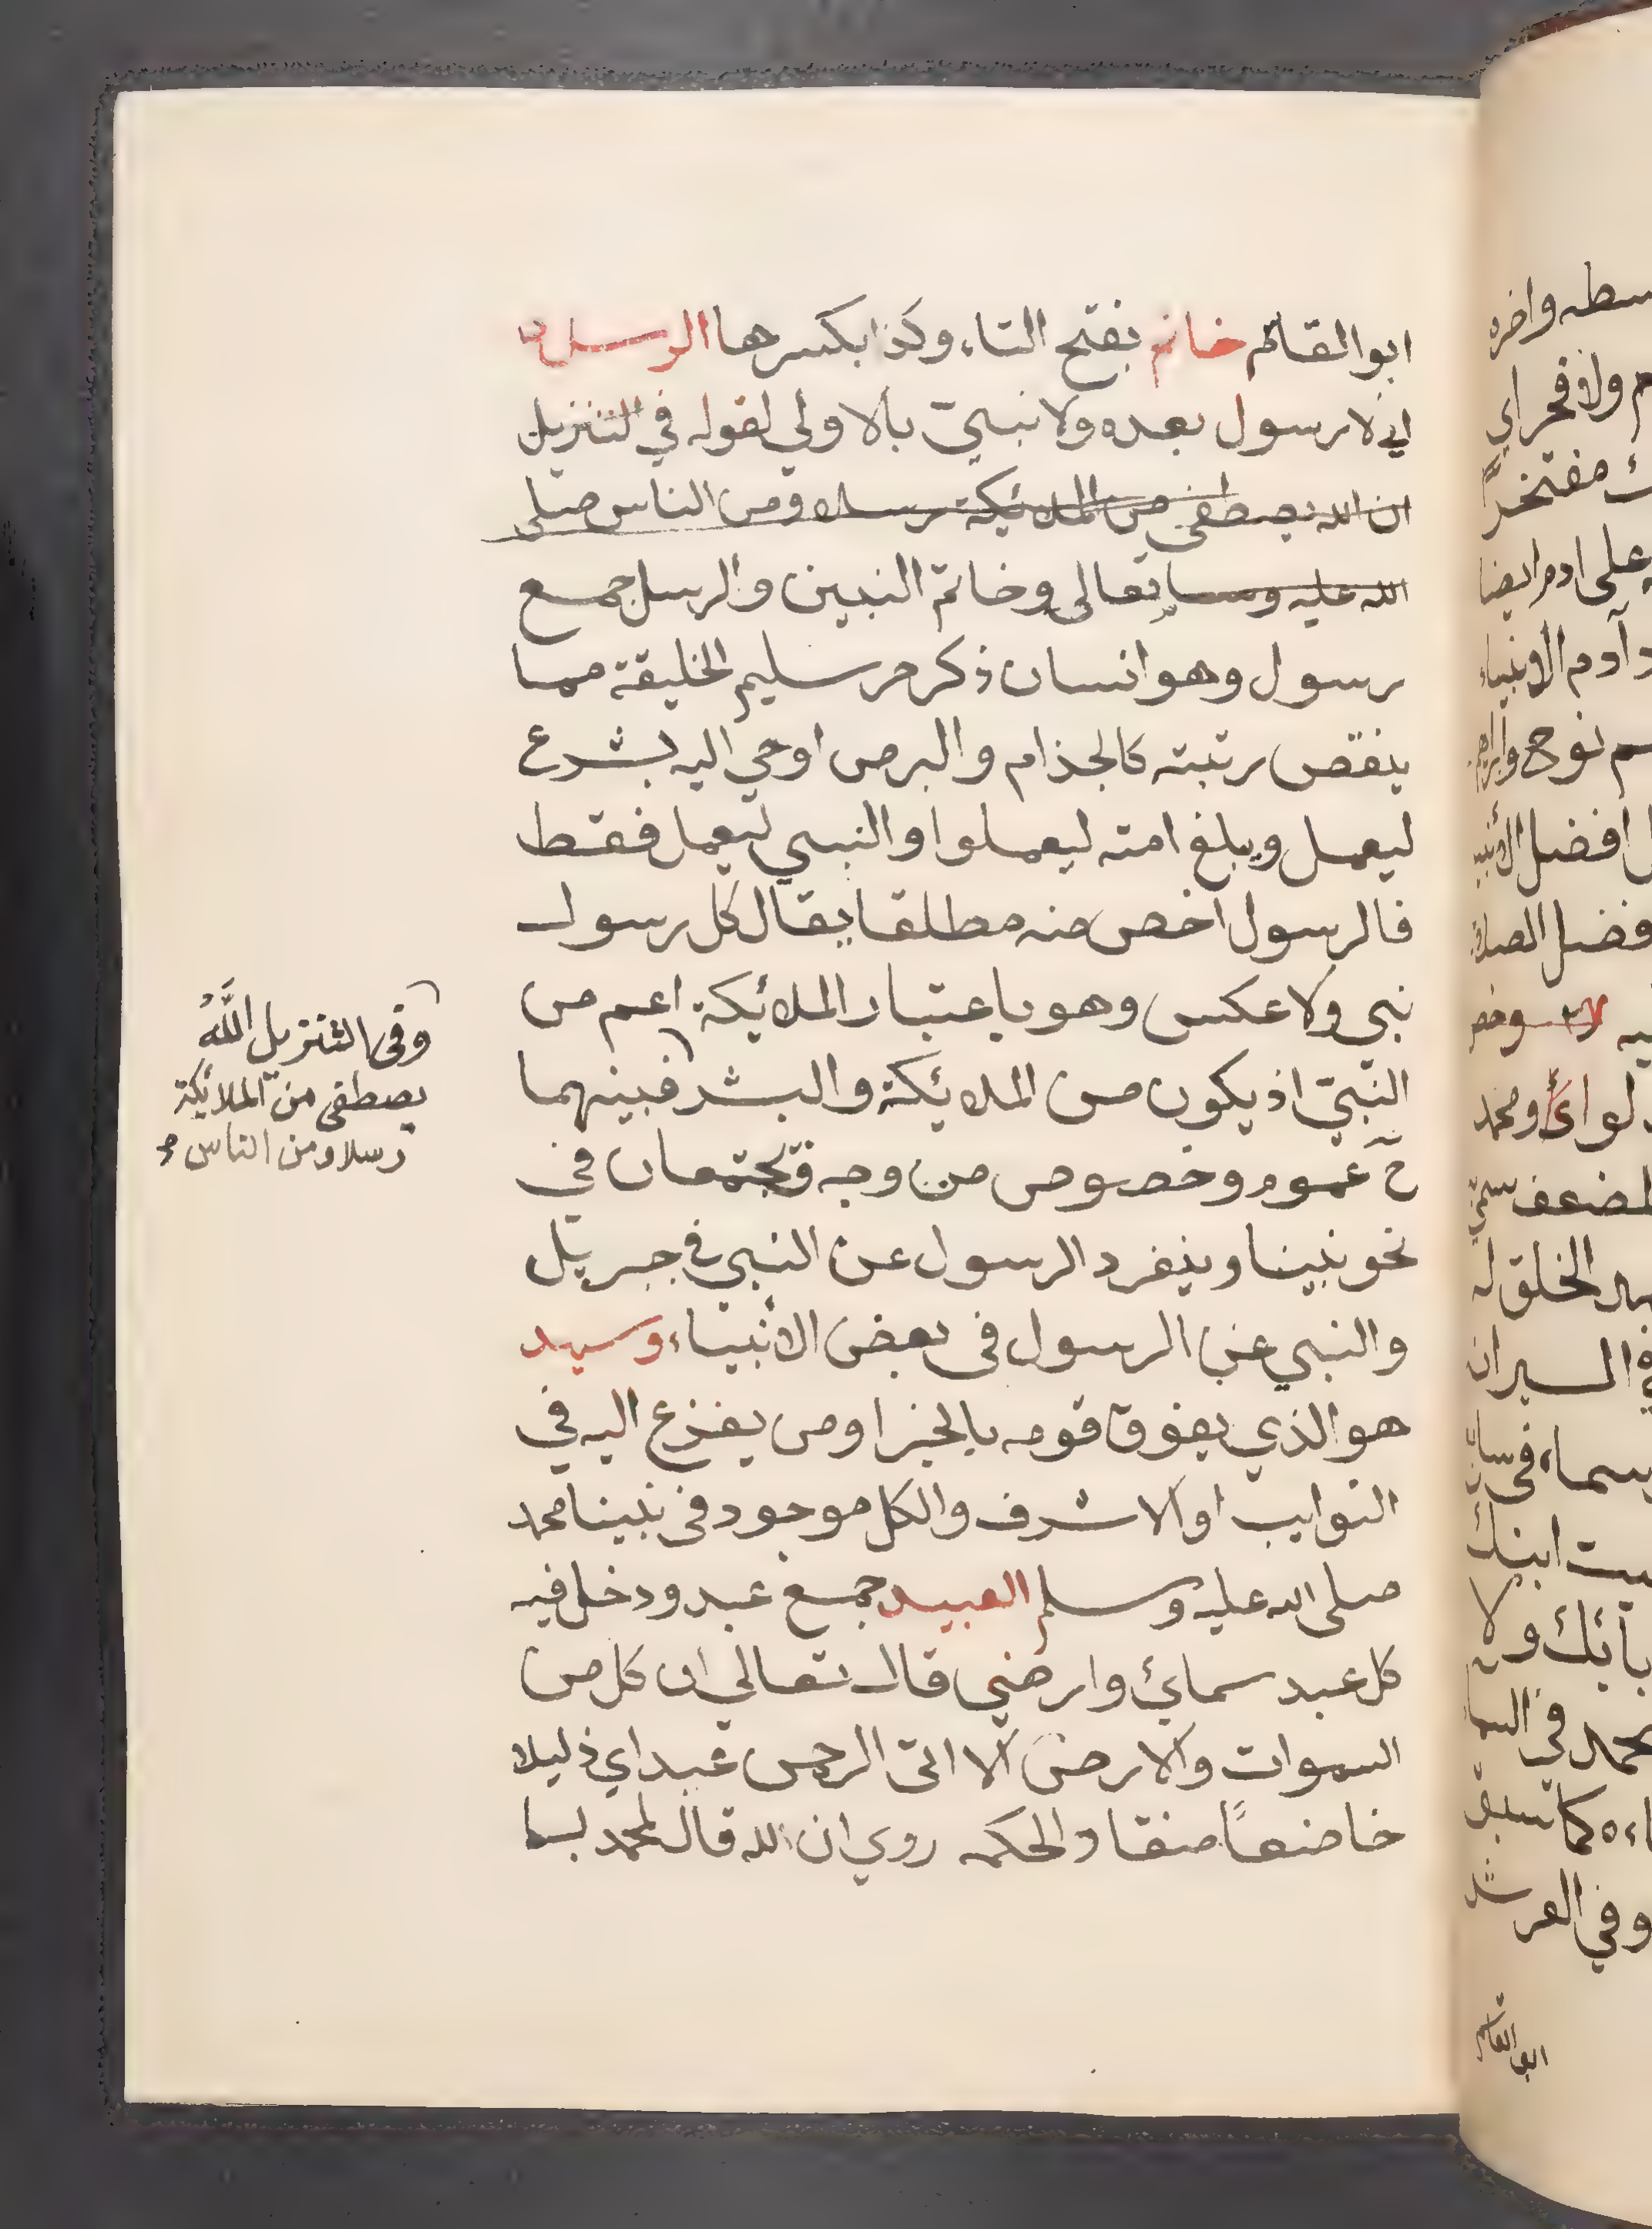 ابوالقاسم خاتم بفتح التاء وكذا بكسرها الرسل
اي لا رسول بعده ولا نبيّ بالاولي لقوله في التنزيل
ان الله يصطفي من الملائيكة رسلا ومن الناس صلى
الله عليه وسلم تعالى وخاتم النبين والرسل جمع
رسول وهو انسان ذكر حر سليم الخليقة مما
ينقص رتبته كالجذام والبرص اوحي اليه بشرع
ليعمل ويبلغ امته ليعملوا والنبي ليعمل فقط
فالرسول اخص منه مطلقا يقال كل رسول
نبي ولا عكس وهو باعتبار الملائيكة اعم من
النبيّ اذ يكون من الملائيكة والبشر فبينهما
ح عموم وخصوص من وجه فيجتمعان في
نحو نبينا وينفرد الرسول عن النبي في جبريل
والنبي عن الرسول في بعض الأنبياء وسيد
هو الذي يفوق قومه بالخير او من يفزع اليه في
النوايب او الاشرف والكل موجود في نبينا محمد
صلى الله عليه وسلم العبيد جمع عبد ودخل فيه
كل عبد سمائ وارضي قال تعالي ان كل من
السموات والارض الا اتى الرحمن عبدا اي ذليلا
خاضعاً منقاد الحكمه روي ان الله قال لمحمد لما
وفي التنزيل اللَّهُ
يصطفي من الملايكة
رسلا ومن الناس
سطه واخره
ولا فخر اي
مفتخراً
على ادم ايضا
آدم الانبياء
نوح وابراهيم
افضل
فضل الصلاة
ومحمد
الخلق له
السير ان
في
ابنك
ولا
في السما
كما
وفي العرش
ابوالقاسم